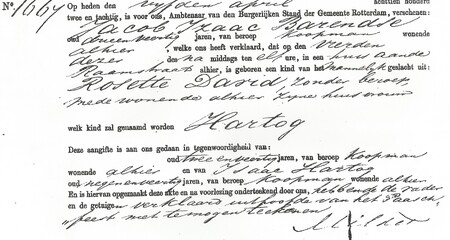 No. 1664
Op heden den vijfden april achttien honderd
twee en tachtig, is voor ons, Ambtenaar van den Burgerlijken Stand der Gemeente Rotterdam, verschenen:
Jacob Izaac Barendse
oud drieenveertig jaren, van beroep koopman wonende
alhier, welke ons heeft verklaard, dat op den vierden
dezer des na middags ten elf ure, in een huis aan de
Raamstraat alhier, is geboren een kind van het mannelijk geslacht uit:
Rosette David, zonder beroep,
mede wonende alhier zijne huisvrouw
welk kind zal genaamd worden Hartog
Deze aangifte is aan ons gedaan in tegenwoordigheid van:
oud twee enveertig jaren, van beroep Koopman
wonende alhier en van Isaac Hartog
oud negenenveertig jaren, van beroep koopman wonende alhier
En is hiervan opgemaakt deze akte en na voorlezing onderteekend door ons, hebbende de vader
en de getuigen verklaard uit hoofde van het Paasch
feest niet te mogen teekenen